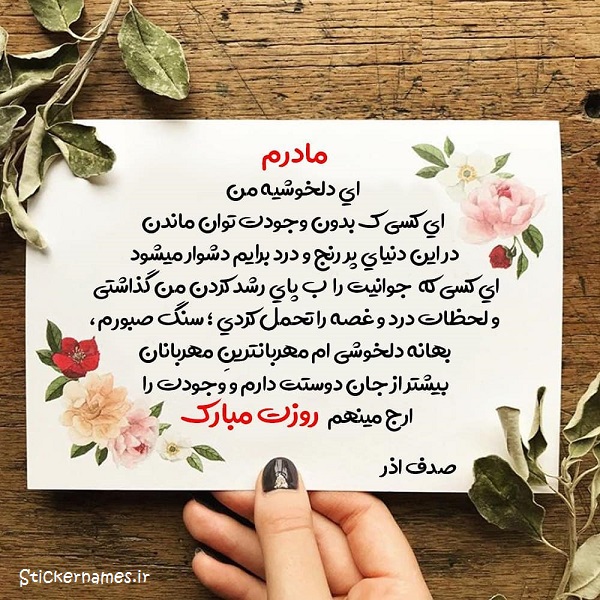 مادرم
اي دلخوشیه من
اي کسی ک بدون وجودت توان ماندن
در این دنیاي پر رنج و درد برایم دشوار میشود
اي کسی که جوانیت را ب پاي رشد کردن من گذاشتی
و لحظات درد و غصه را تحمل کردي ؛ سنگ صبورم ،
بهانه دلخوشی ام مهربانترینِ مهربانان
بیشتر از جان دوستت دارم و وجودت را
ارج مینهم روزت مبارک
صدف اذر
Stickernames.ir